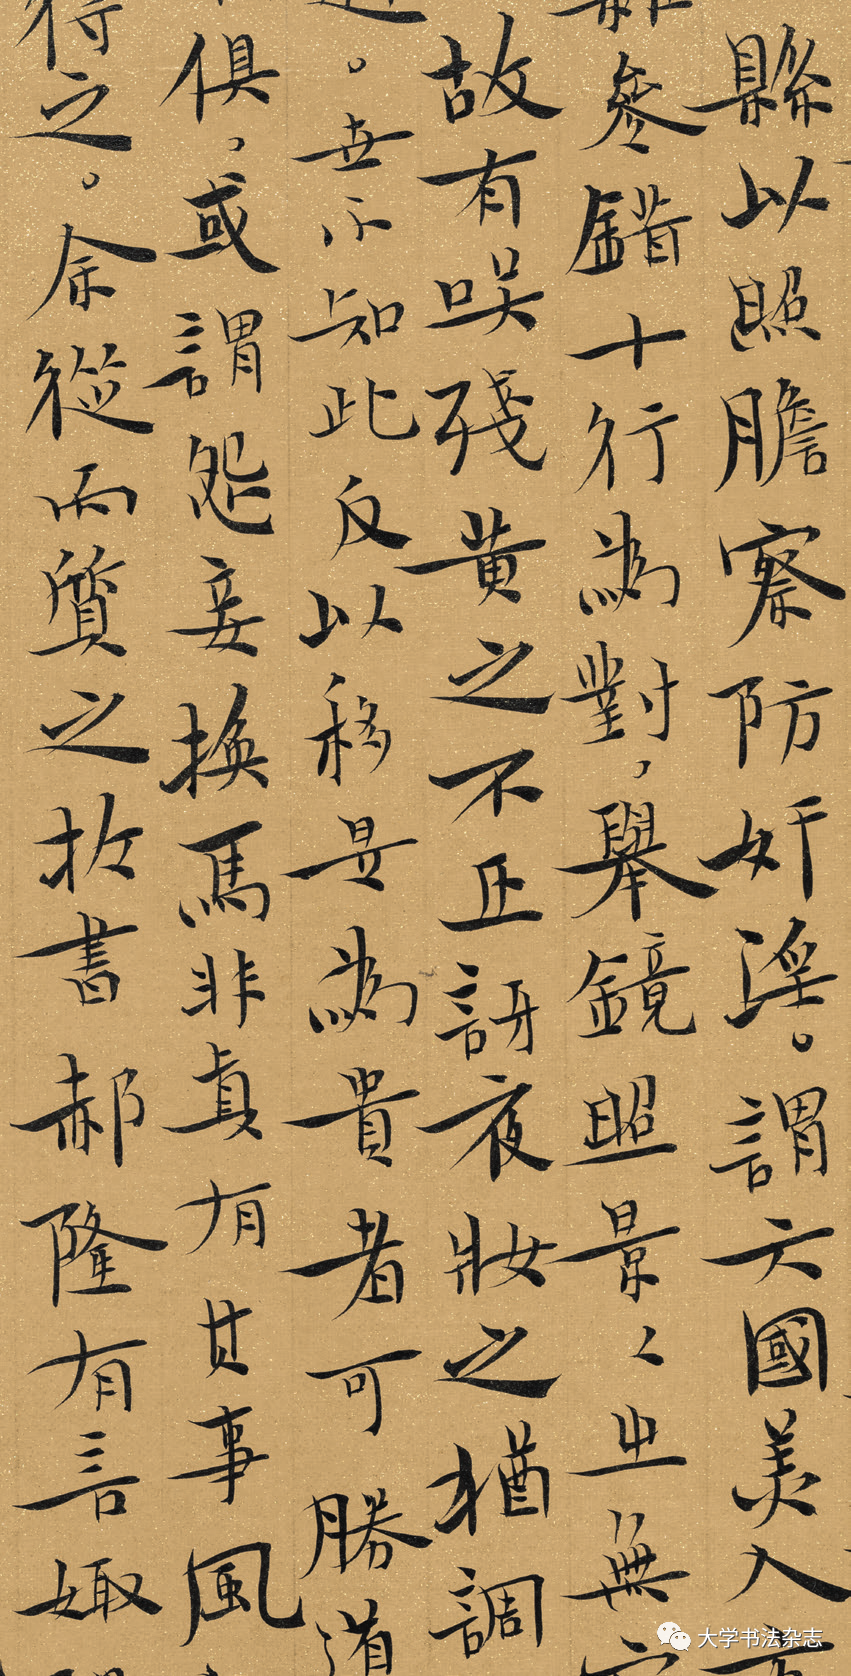 縣以照膽察防奸淫。謂六國美人
參錯十行為對，舉鏡照景〻㞢無
故有殘黃之不正訝夜妝之猶調
。世不知此反以移是為貴者可勝道
俱，或謂怨妾換馬非真有其事風
得之。余從而質之於書郝隆有言娵
大学书法杂志